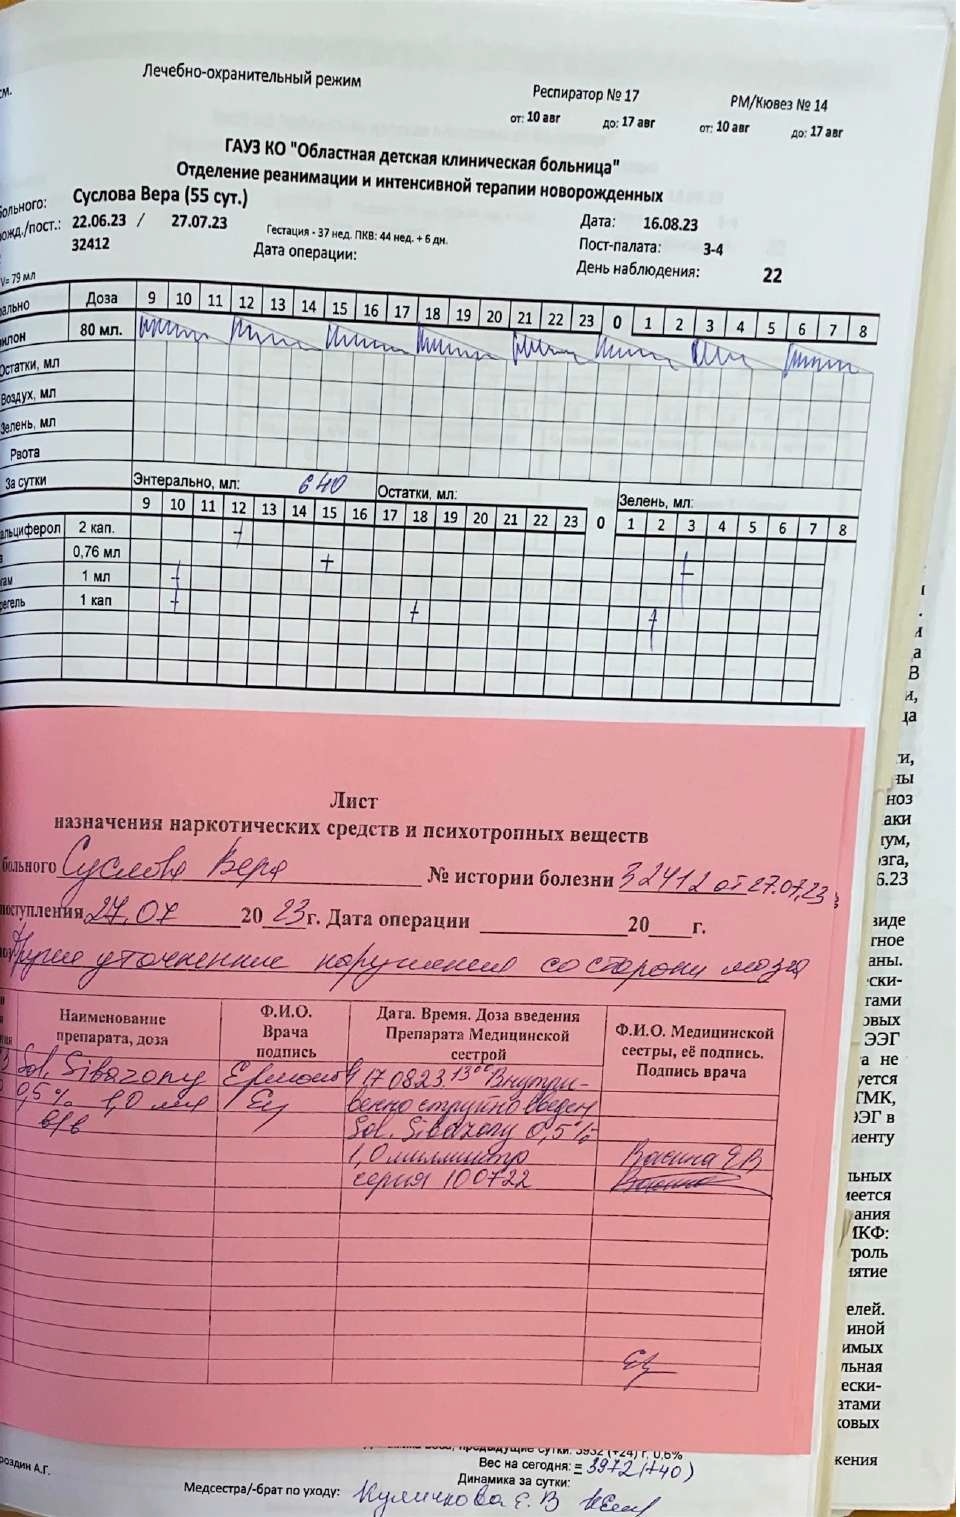 см.
Лечебно-охранительный режим
Респиратор № 17
РМ/Кювез № 14
от: 10 авг до: 17 авг от: 10 авг до: 17 авг
ГАУЗ КО "Областная детская клиническая больница"
Отделение реанимации и интенсивной терапии новорожденных
больного: Суслова Вера (55 сут.)
рожд./пост.: 22.06.23 / 27.07.23
Гестация - 37 нед. ПКВ: 44 нед. + 6 дн.
32412
Дата операции:
Дата: 16.08.23
Пост-палата: 3-4
День наблюдения: 22
V= 79 мл
рально Доза 9 10 11 12 13 14 15 16 17 18 19 20 21 22 23 0 1 2 3 4 5 6 7 8
илон 80 мл.
Остатки, мл
Воздух, мл
Зелень, мл
Рвота
За сутки Энтерально, мл: 640 Остатки, мл: Зелень, мл:
9 10 11 12 13 14 15 16 17 18 19 20 21 22 23 0 1 2 3 4 5 6 7 8
альциферол 2 кап.
а 0,76 мл
гам 1 мл
регель 1 кап
Лист
назначения наркотических средств и психотропных веществ
больного Суслова Вера № истории болезни 32412 от 27.07.23
поступления 27.07 2023г. Дата операции 20 г.
Другие уточненные нарушения со стороны мозга
Наименование препарата, доза
Ф.И.О. Врача подпись
Дата. Время. Доза введения Препарата Медицинской сестрой
Ф.И.О. Медицинской сестры, её подпись. Подпись врача
Sol. Sibazony
0,5% 1,0 мл
в/в
17.08.23. 13°° Внутри-
венно струйно введен
Sol. Sibazony 0,5%
1,0 миллилитр
серия 100722
Васина ЕВ
предыдущие сутки: 3932 (+24) г, 0,6%
Вес на сегодня: = 3972 (+40)
Динамика за сутки:
роздин А.Г.
Медсестра/-брат по уходу: Куличкова Е. В
ги,
ноз
аки
пум,
озга,
6.23
виде
тное
аны.
ески-
гами
овых
ЭЭГ
а не
уется
ГМК,
ЭЭГ в
иенту
льных
меется
ания
МКФ:
троль
иятие
елей.
иной
имых
льная
ески-
атами
ковых
жения